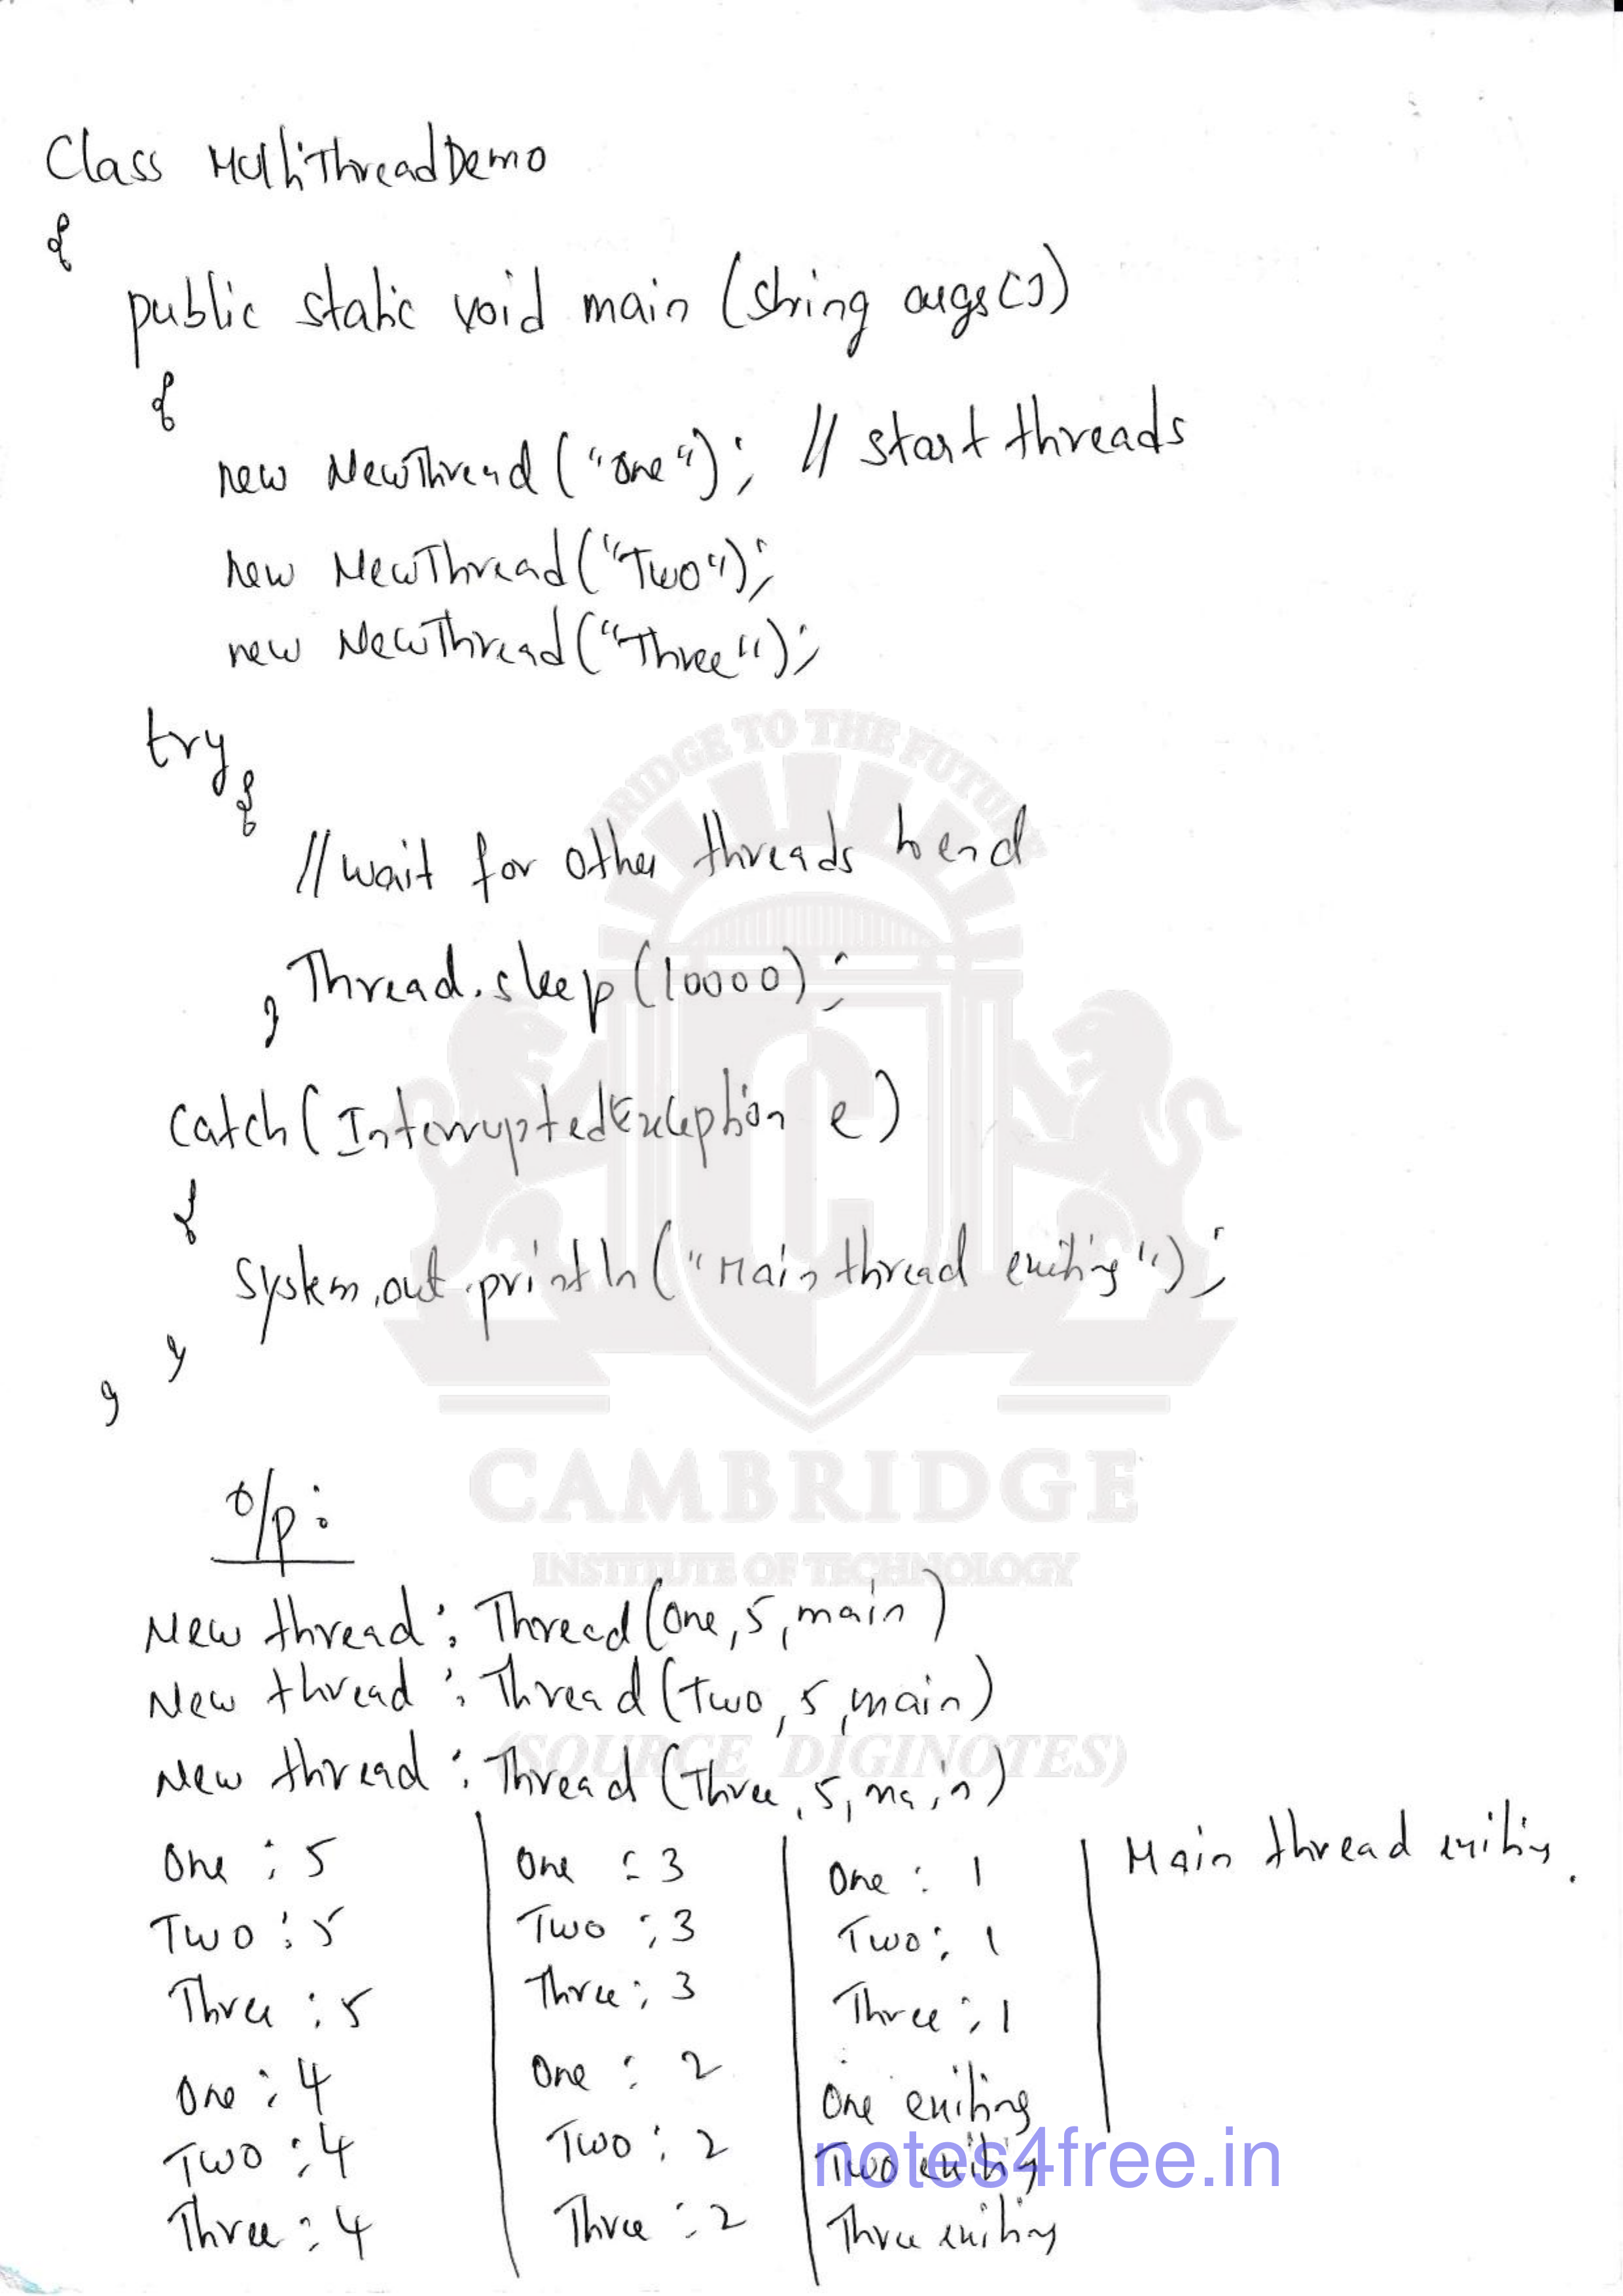 Class MultiThreadDemo
{
public static void main (String args[])
{
new NewThread ("One"); // start threads
new NewThread ("Two");
new NewThread ("Three");
try
{
// wait for other threads to end
Thread.sleep (10000);
}
Catch ( InterruptedException e )
{
System.out.println ("Main thread exiting");
}
}
O/p:
New thread: Thread (One, 5, main)
New thread: Thread (Two, 5, main)
New thread: Thread (Three, 5, main)
One : 5
Two : 5
Three : 5
One : 4
Two : 4
Three : 4
One : 3
Two : 3
Three : 3
One : 2
Two : 2
Three : 2
One : 1
Two : 1
Three : 1
One exiting
Two exiting
Three exiting
Main thread exiting.
BRIDGE TO THE FUTURE
CAMBRIDGE
INSTITUTE OF TECHNOLOGY
(SOURCE DIGINOTES)
notes4free.in